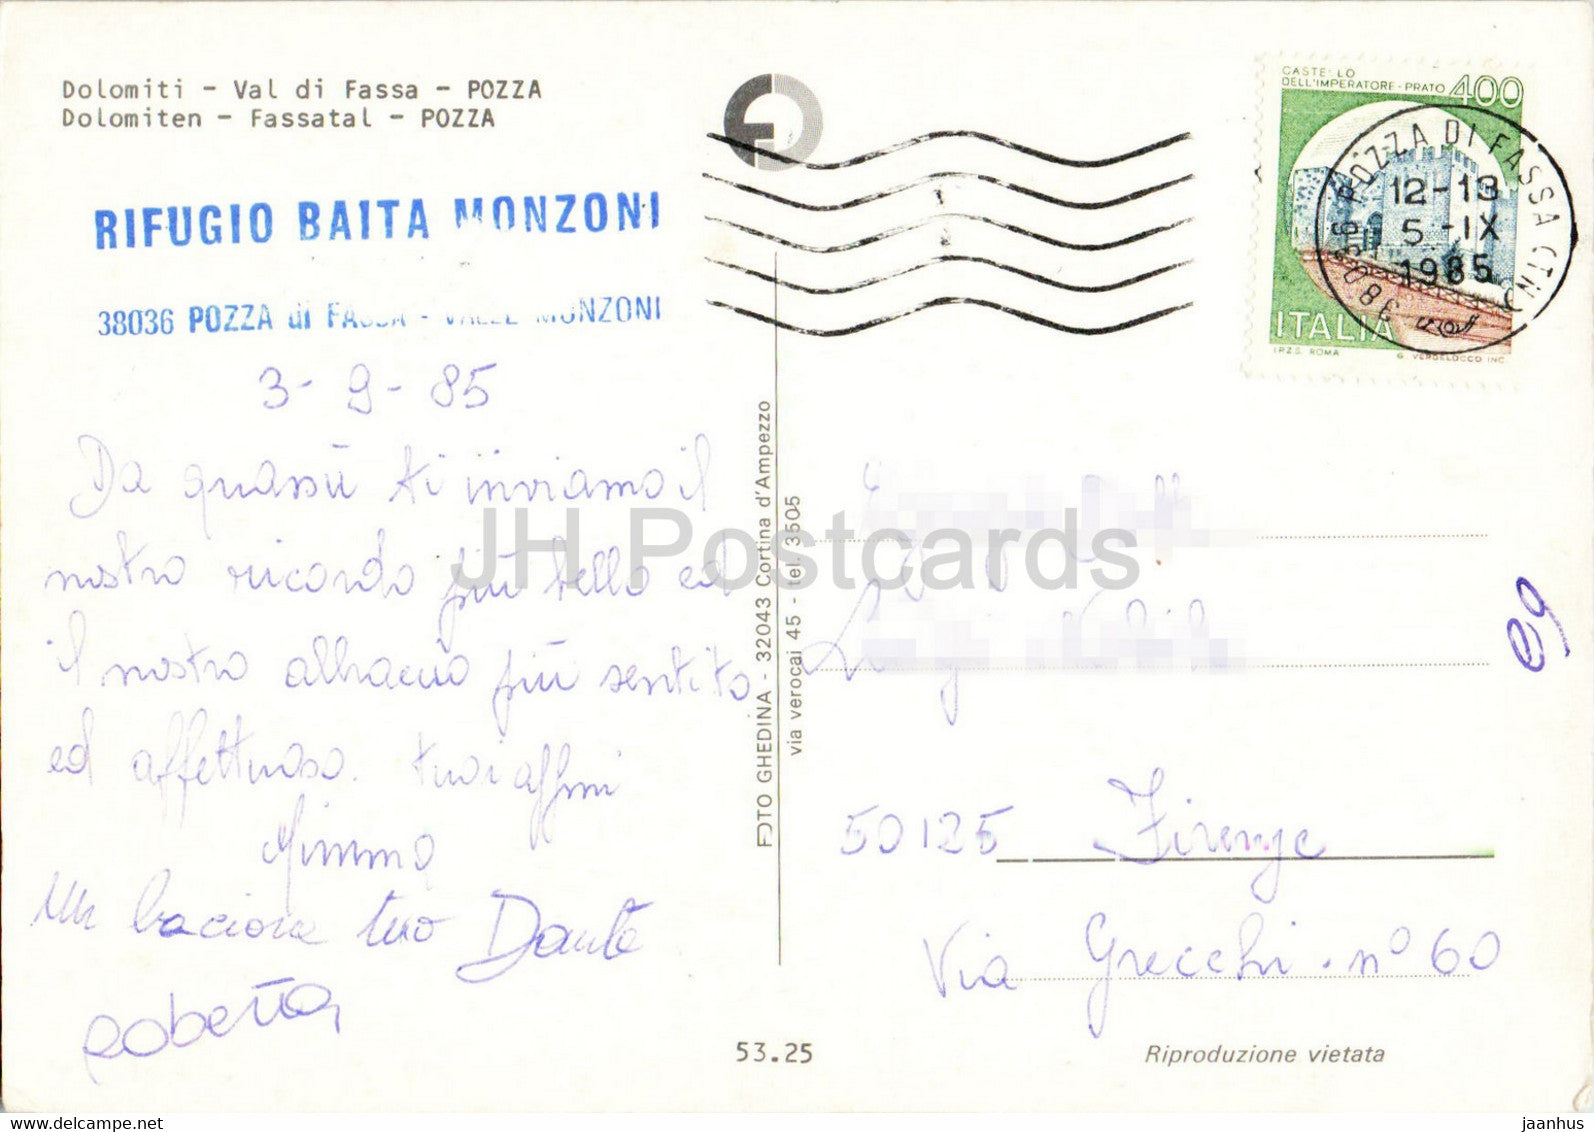 Dolomiti - Val di Fassa - POZZA
Dolomiten - Fassatal - POZZA
RIFUGIO BAITA MONZONI
38036 POZZA di FASSA - VALLE MONZONI
3-9-85
Da quassù ti inviamo il
nostro ricordo più bello ed
il nostro abbraccio più sentito
ed affettuoso. tuoi affmi
Mimmo
Un bacione tuo Dante
Roberta
FOTO GHEDINA - 32043 Cortina d'Ampezzo
via verocai 45 - tel. 3505
CASTELLO
DELL'IMPERATORE - PRATO 400
ITALIA
I.P.Z.S. ROMA G. VERDELOCCO INC.
38036 POZZA DI FASSA (TN)
12-13
5-IX
1985
50125 Firenze
Via Grecchi. n° 60
69
53.25
Riproduzione vietata
JH Postcards
jaanhus @ delcampe.net